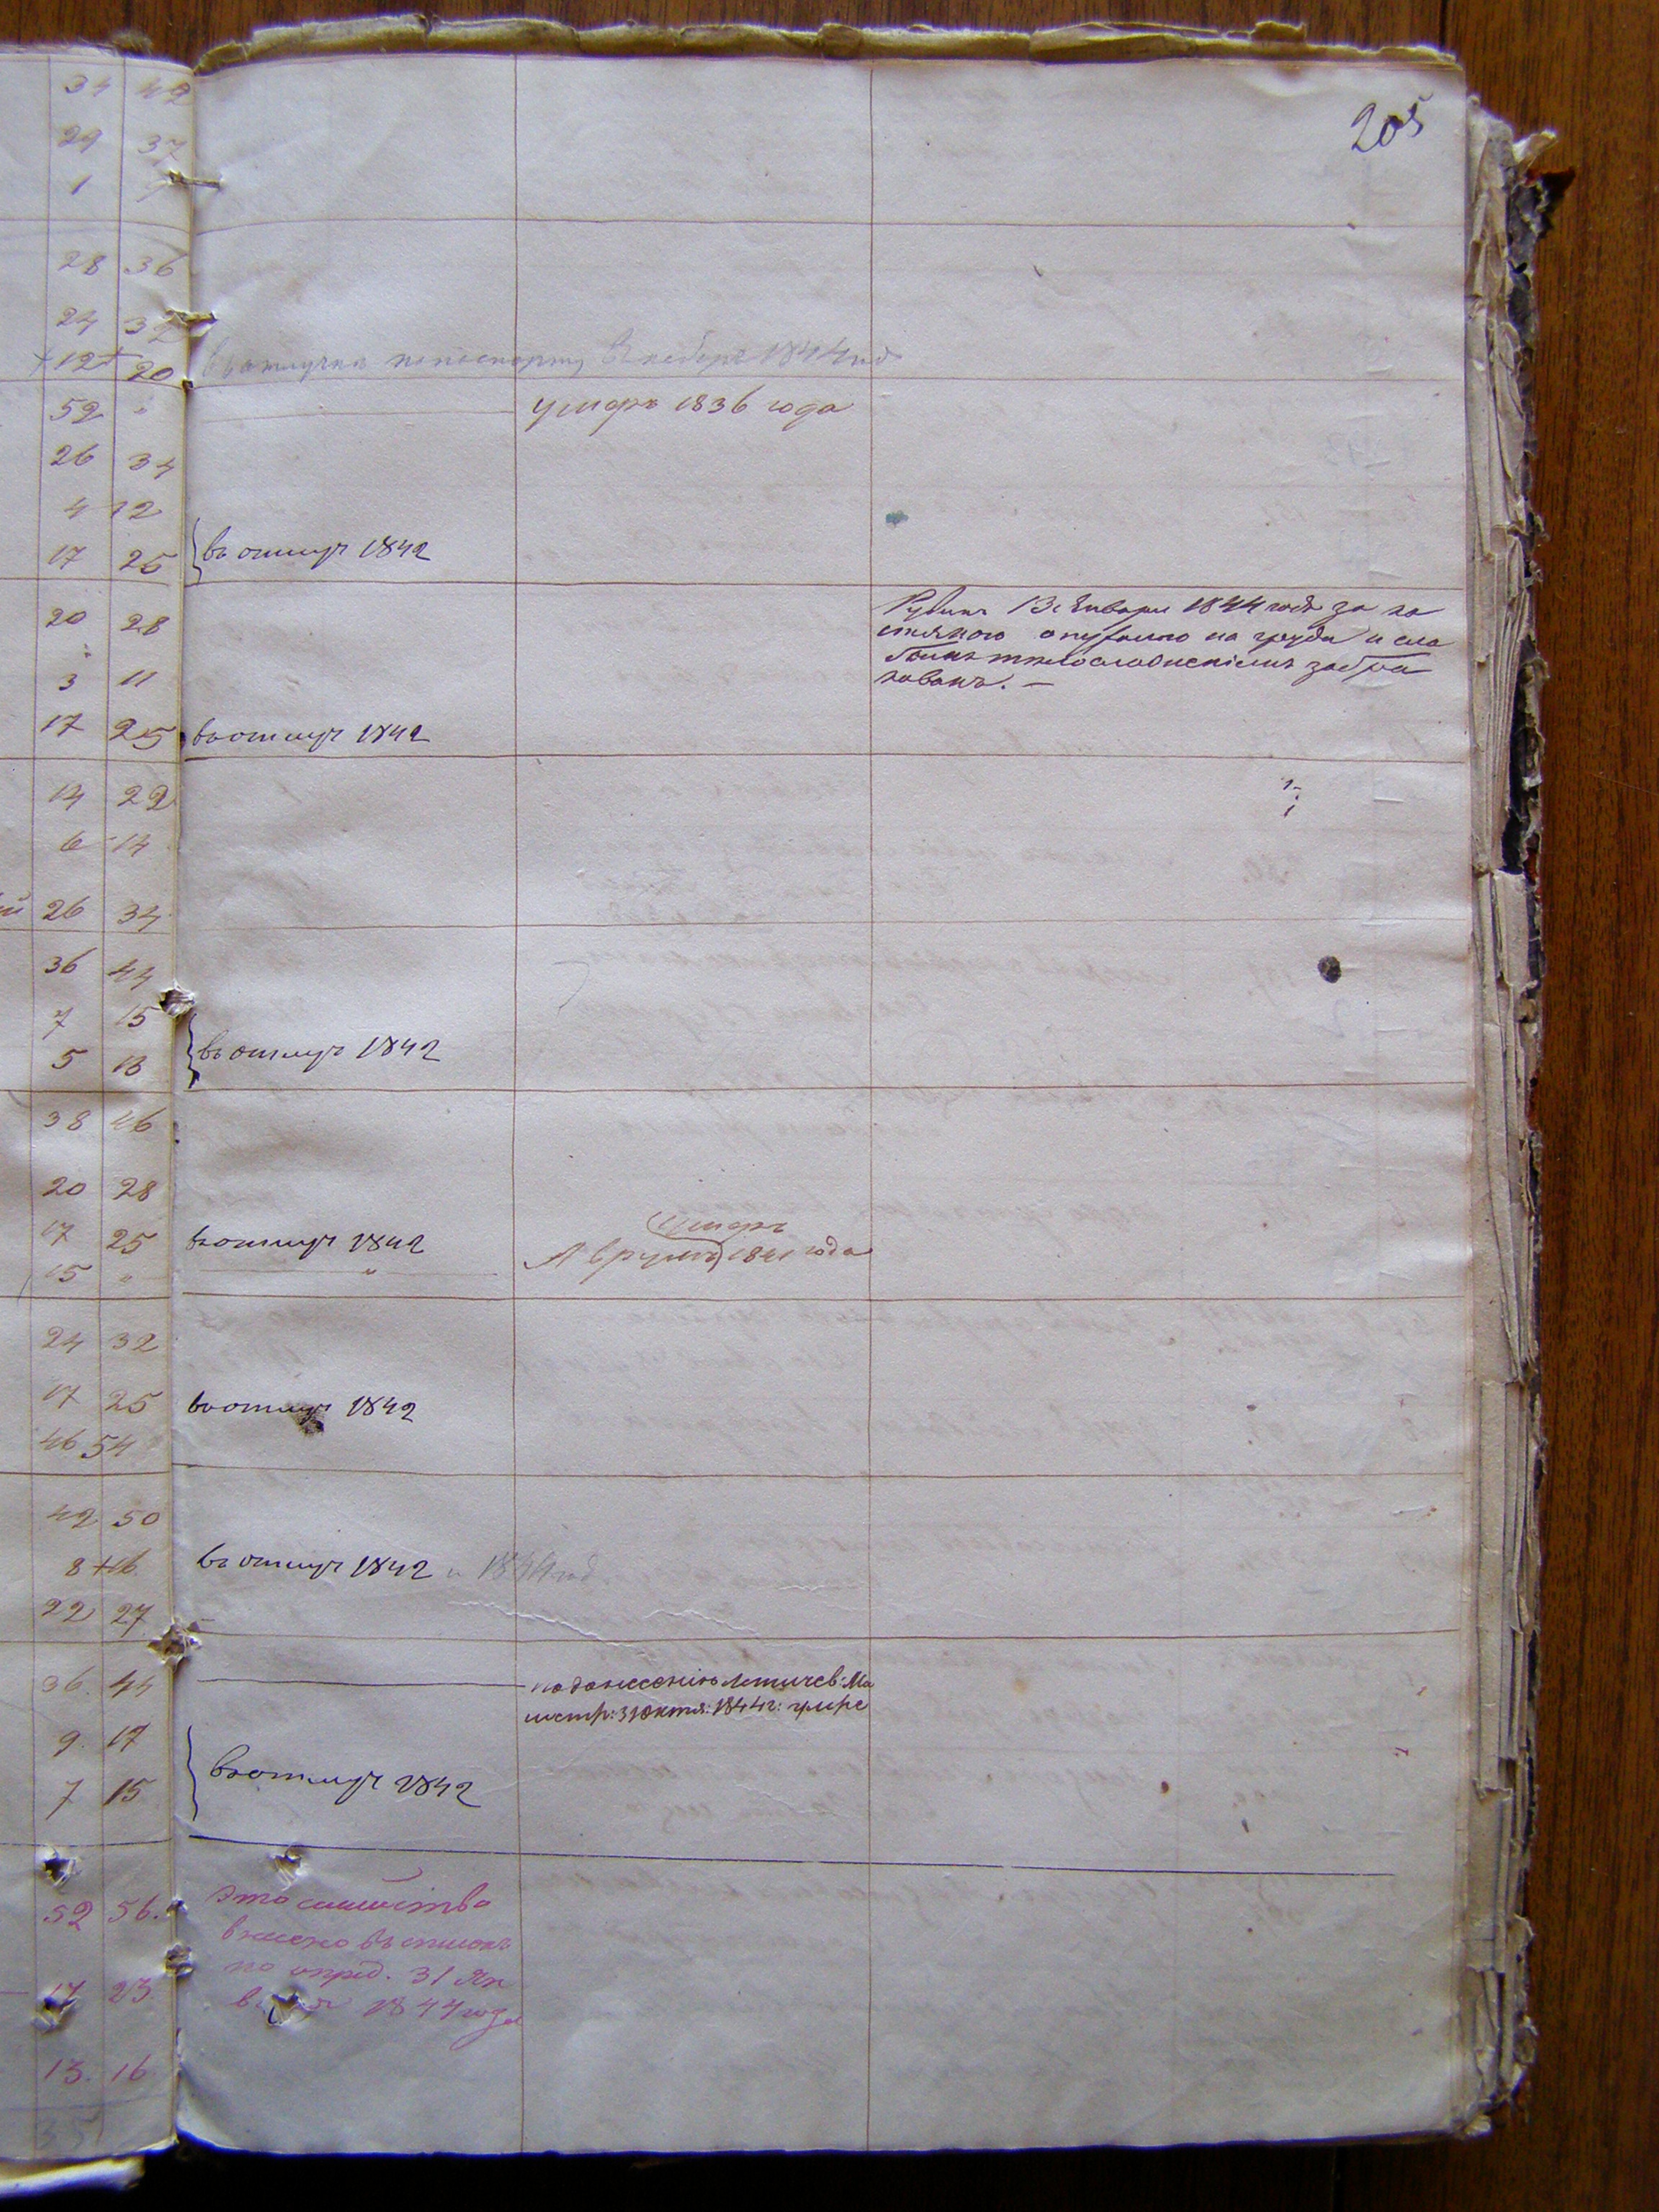 205
34 42
29 37
1
28 36
24 32
+12+ 20 въ отлучке по паспорту 1844 год
52 " умеръ 1836 года
26 34
4 12
17 25 въ отлуч 1842
20 28 Рувинъ 13 Января 1844 года за ко
" на груди и сла
3 11 бымъ тѣлосложеніемъ забра
кованъ. —
17 25 въ отлуч 1842
14 22
6 14
26 34
36 44
7 15
5 13 въ отлуч 1842
38 46
20 28
умеръ
17 25 въ отлуч 1842 Аврумъ 1841 года
15 " "
24 32
17 25 въ отлуч 1842
46 54
42 50
8 +16 въ отлуч 1842 и 1844 год
22 27
36 44 по донесенію Летичев: Ма
гистр: 31 октя: 1844 г: умре
9 17
7 15 въ отлуч 1842
52 56. Это семейство
внесено въ списокъ
по опред. 31 Ян
17 23 1844 года
13. 16
35